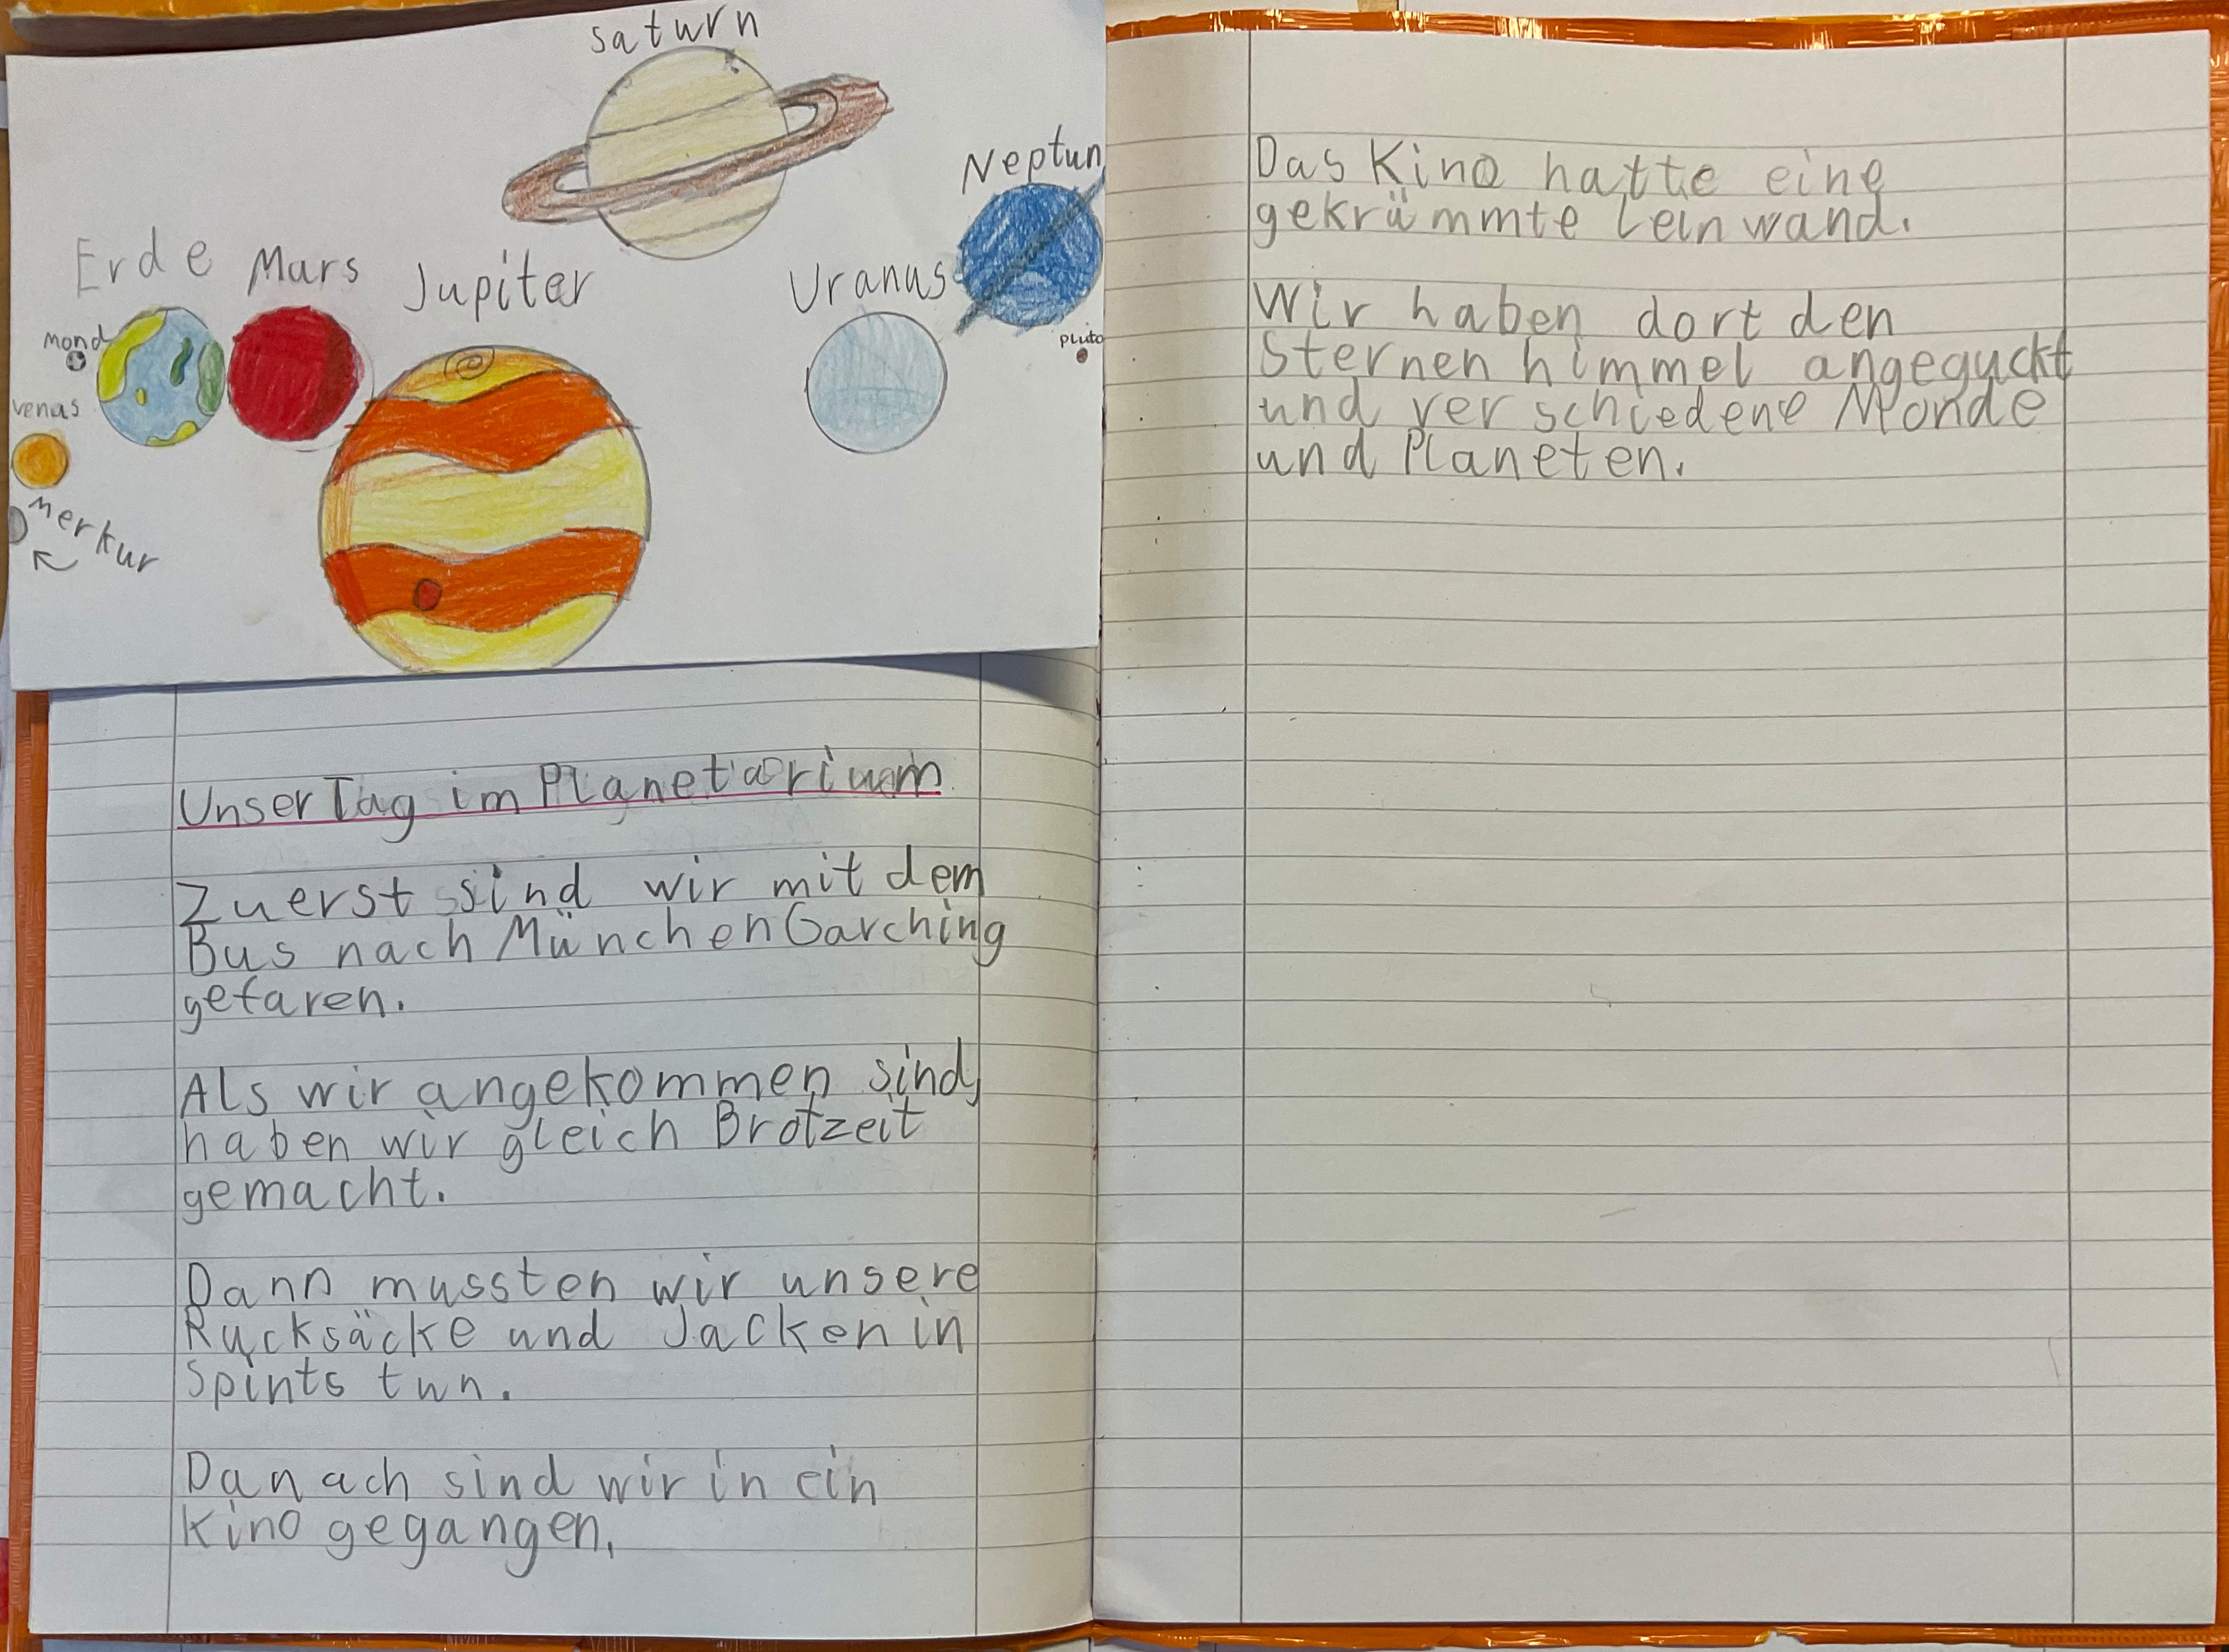 saturn
Neptun
Erde Mars Jupiter Uranus
mond
pluto
venus
merkur
Unser Tag im Planetarium
Zuerst sind wir mit dem
Bus nach München Garching
gefaren.
Als wir angekommen sind,
haben wir gleich Brotzeit
gemacht.
Dann mussten wir unsere
Rucksäcke und Jacken in
Spints tun.
Danach sind wir in ein
Kino gegangen.
Das Kino hatte eine
gekrümmte Leinwand.
Wir haben dort den
Sternenhimmel angeguckt
und verschiedene Monde
und Planeten.